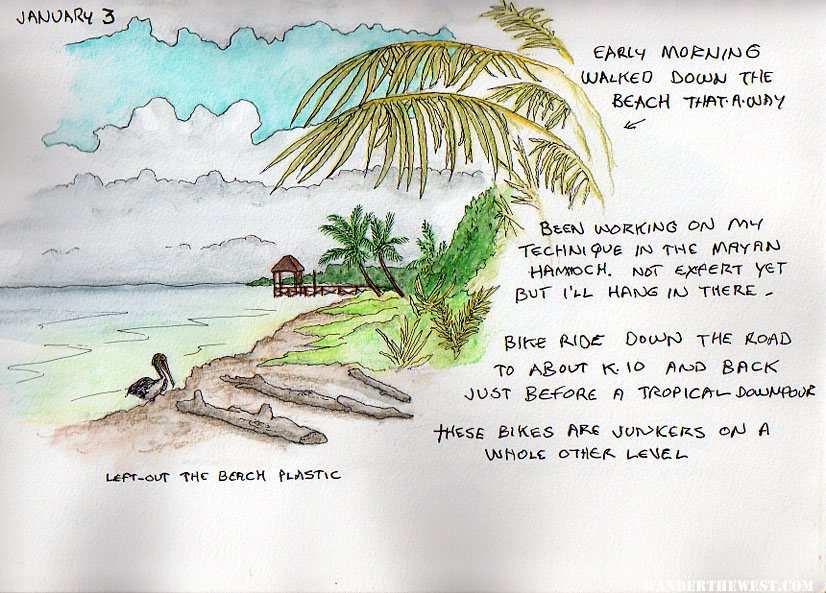 JANUARY 3
EARLY MORNING
WALKED DOWN THE
BEACH THAT·A·WAY
BEEN WORKING ON MY
TECHNIQUE IN THE MAYAN
HAMMOCH. NOT EXPERT YET
BUT I'LL HANG IN THERE -
BIKE RIDE DOWN THE ROAD
TO ABOUT K·10 AND BACK
JUST BEFORE A TROPICAL DOWNPOUR
THESE BIKES ARE JUNKERS ON A
WHOLE OTHER LEVEL
LEFT-OUT THE BEACH PLASTIC
WANDERTHEWEST.COM